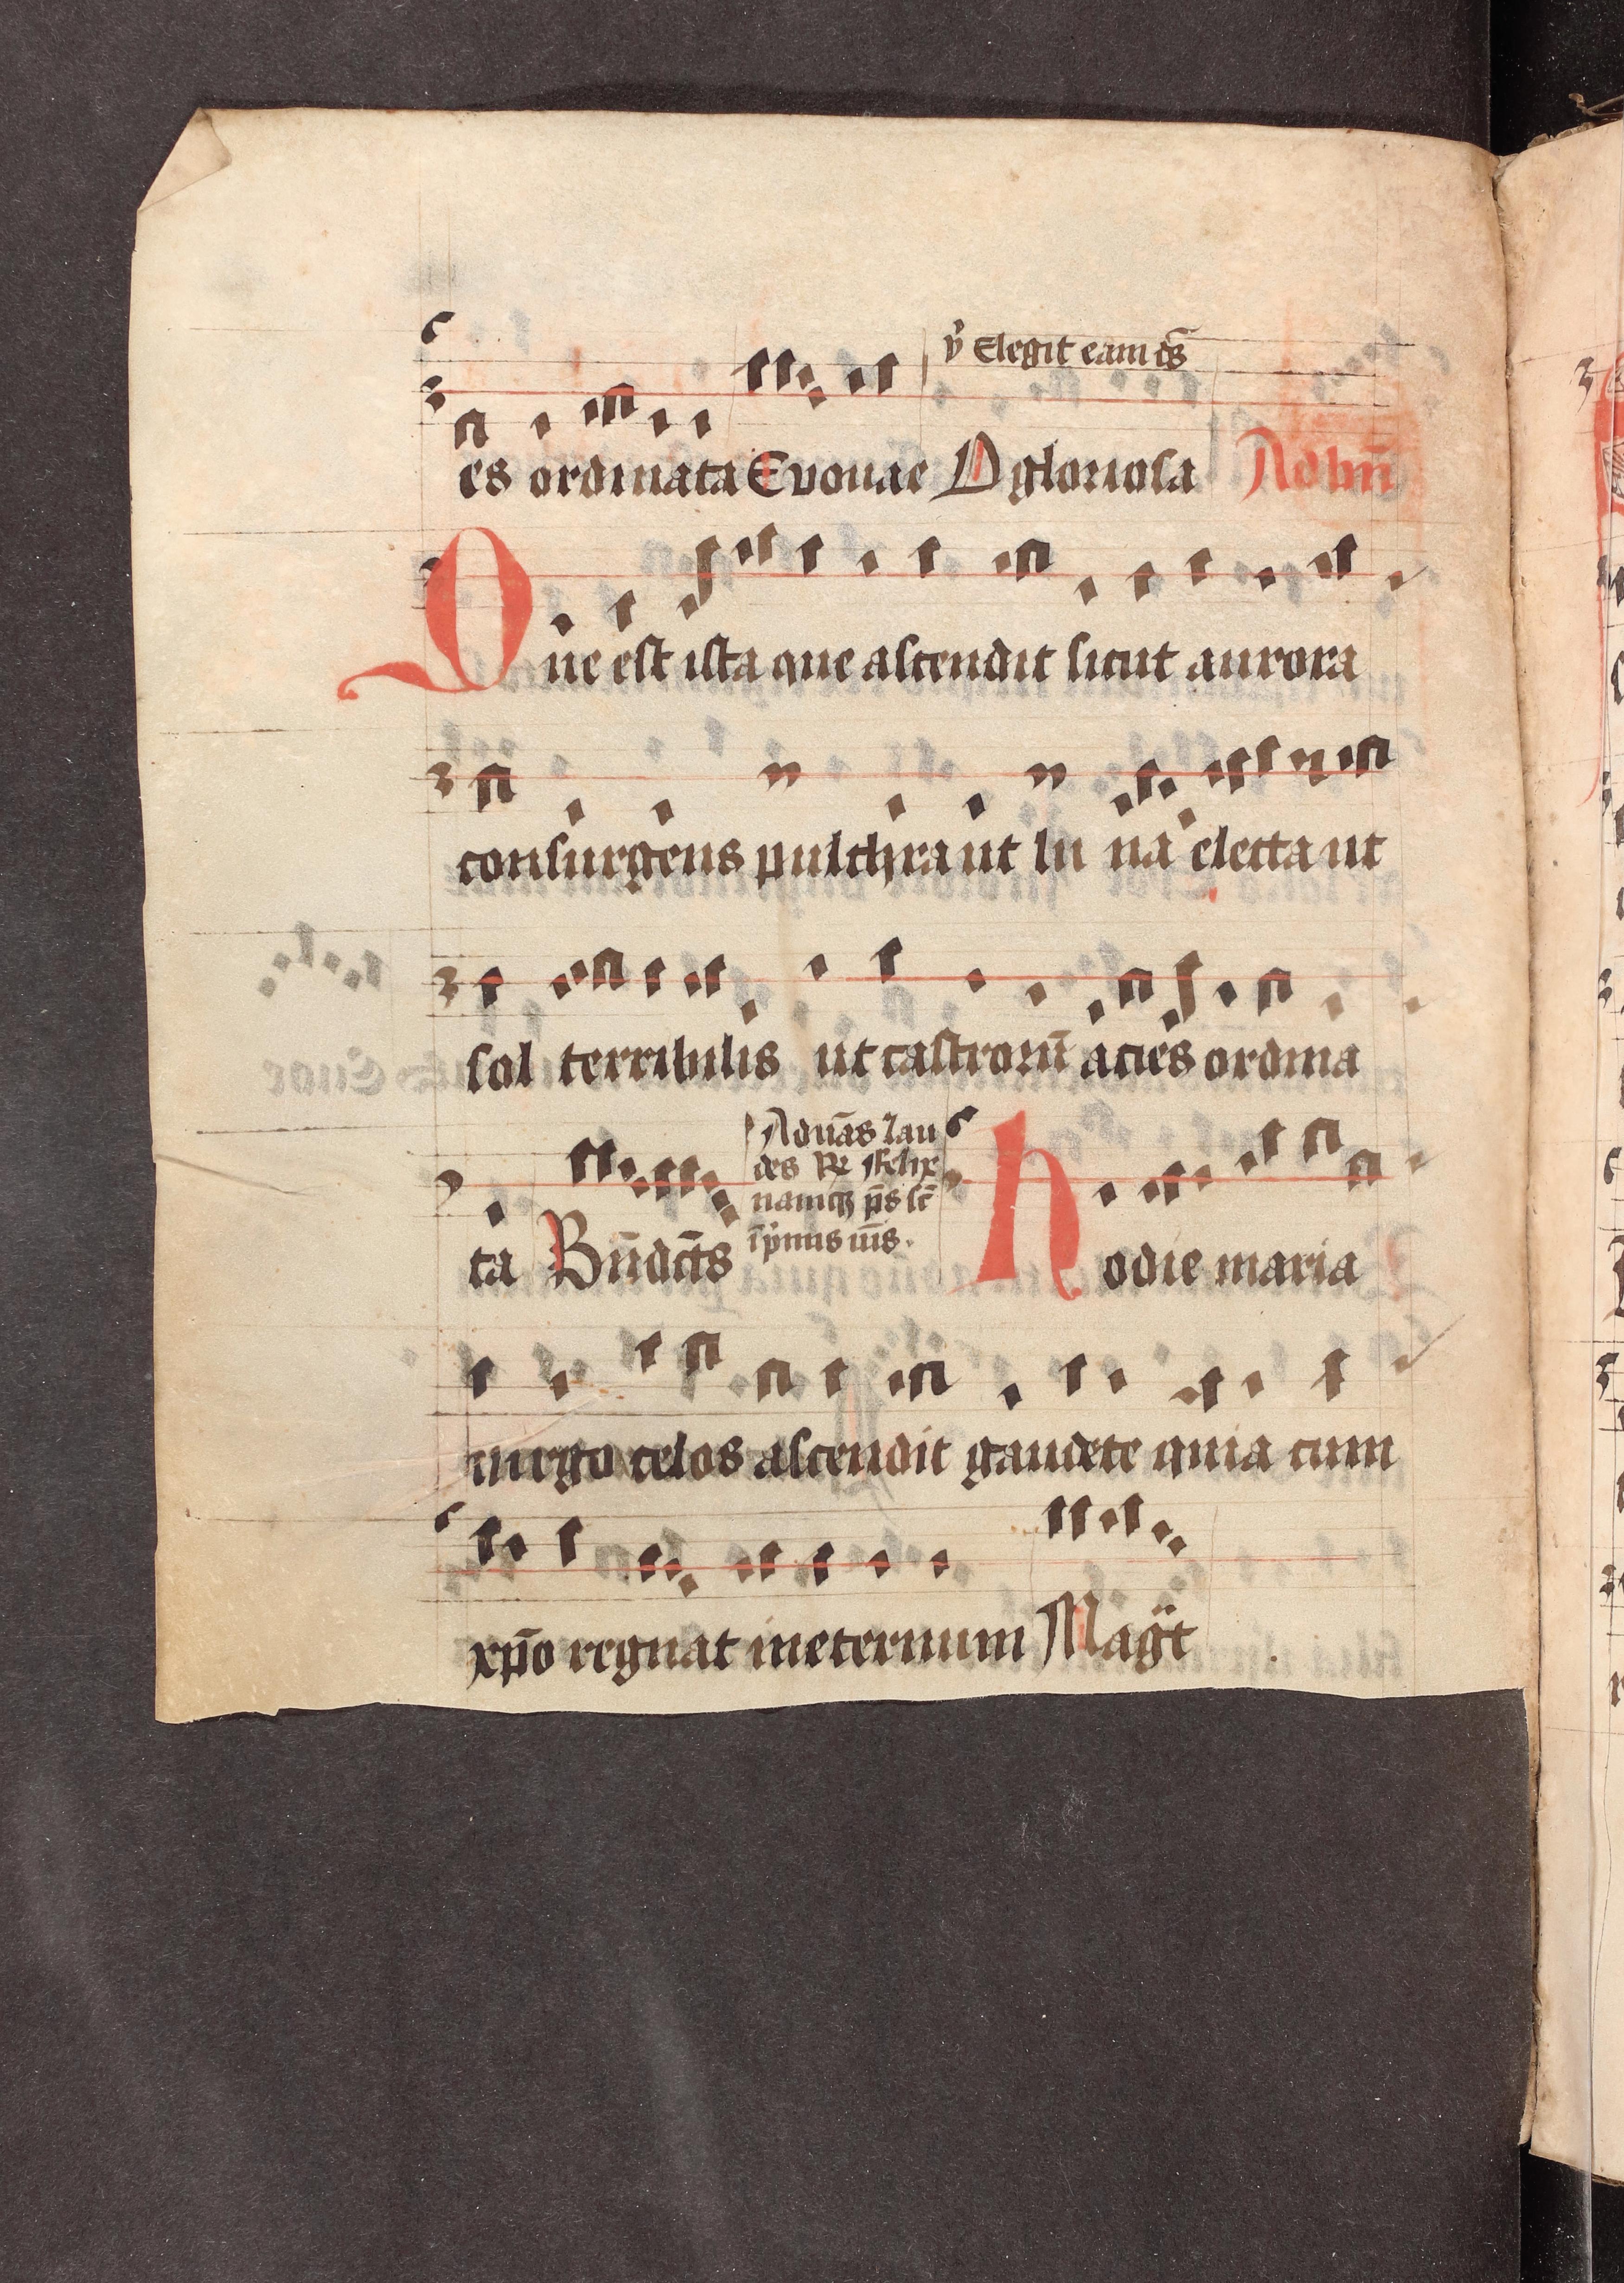 ỹ Elegit eam ts̄
es ordinata Evouae O gloriosa Ad bn̄
Que est ista que ascendit sicut aurora
consurgens pulchra ut lu na electa ut
sol terribilis ut castrorū acies ordina
Ad vās lau
des R̄ Felix
namqȝ p̄s sc̄
ta Bn̄dct̄s
Hodie maria
virgo celos ascendit gaudete quia cum
xp̄o regnat ineternum Magt̄